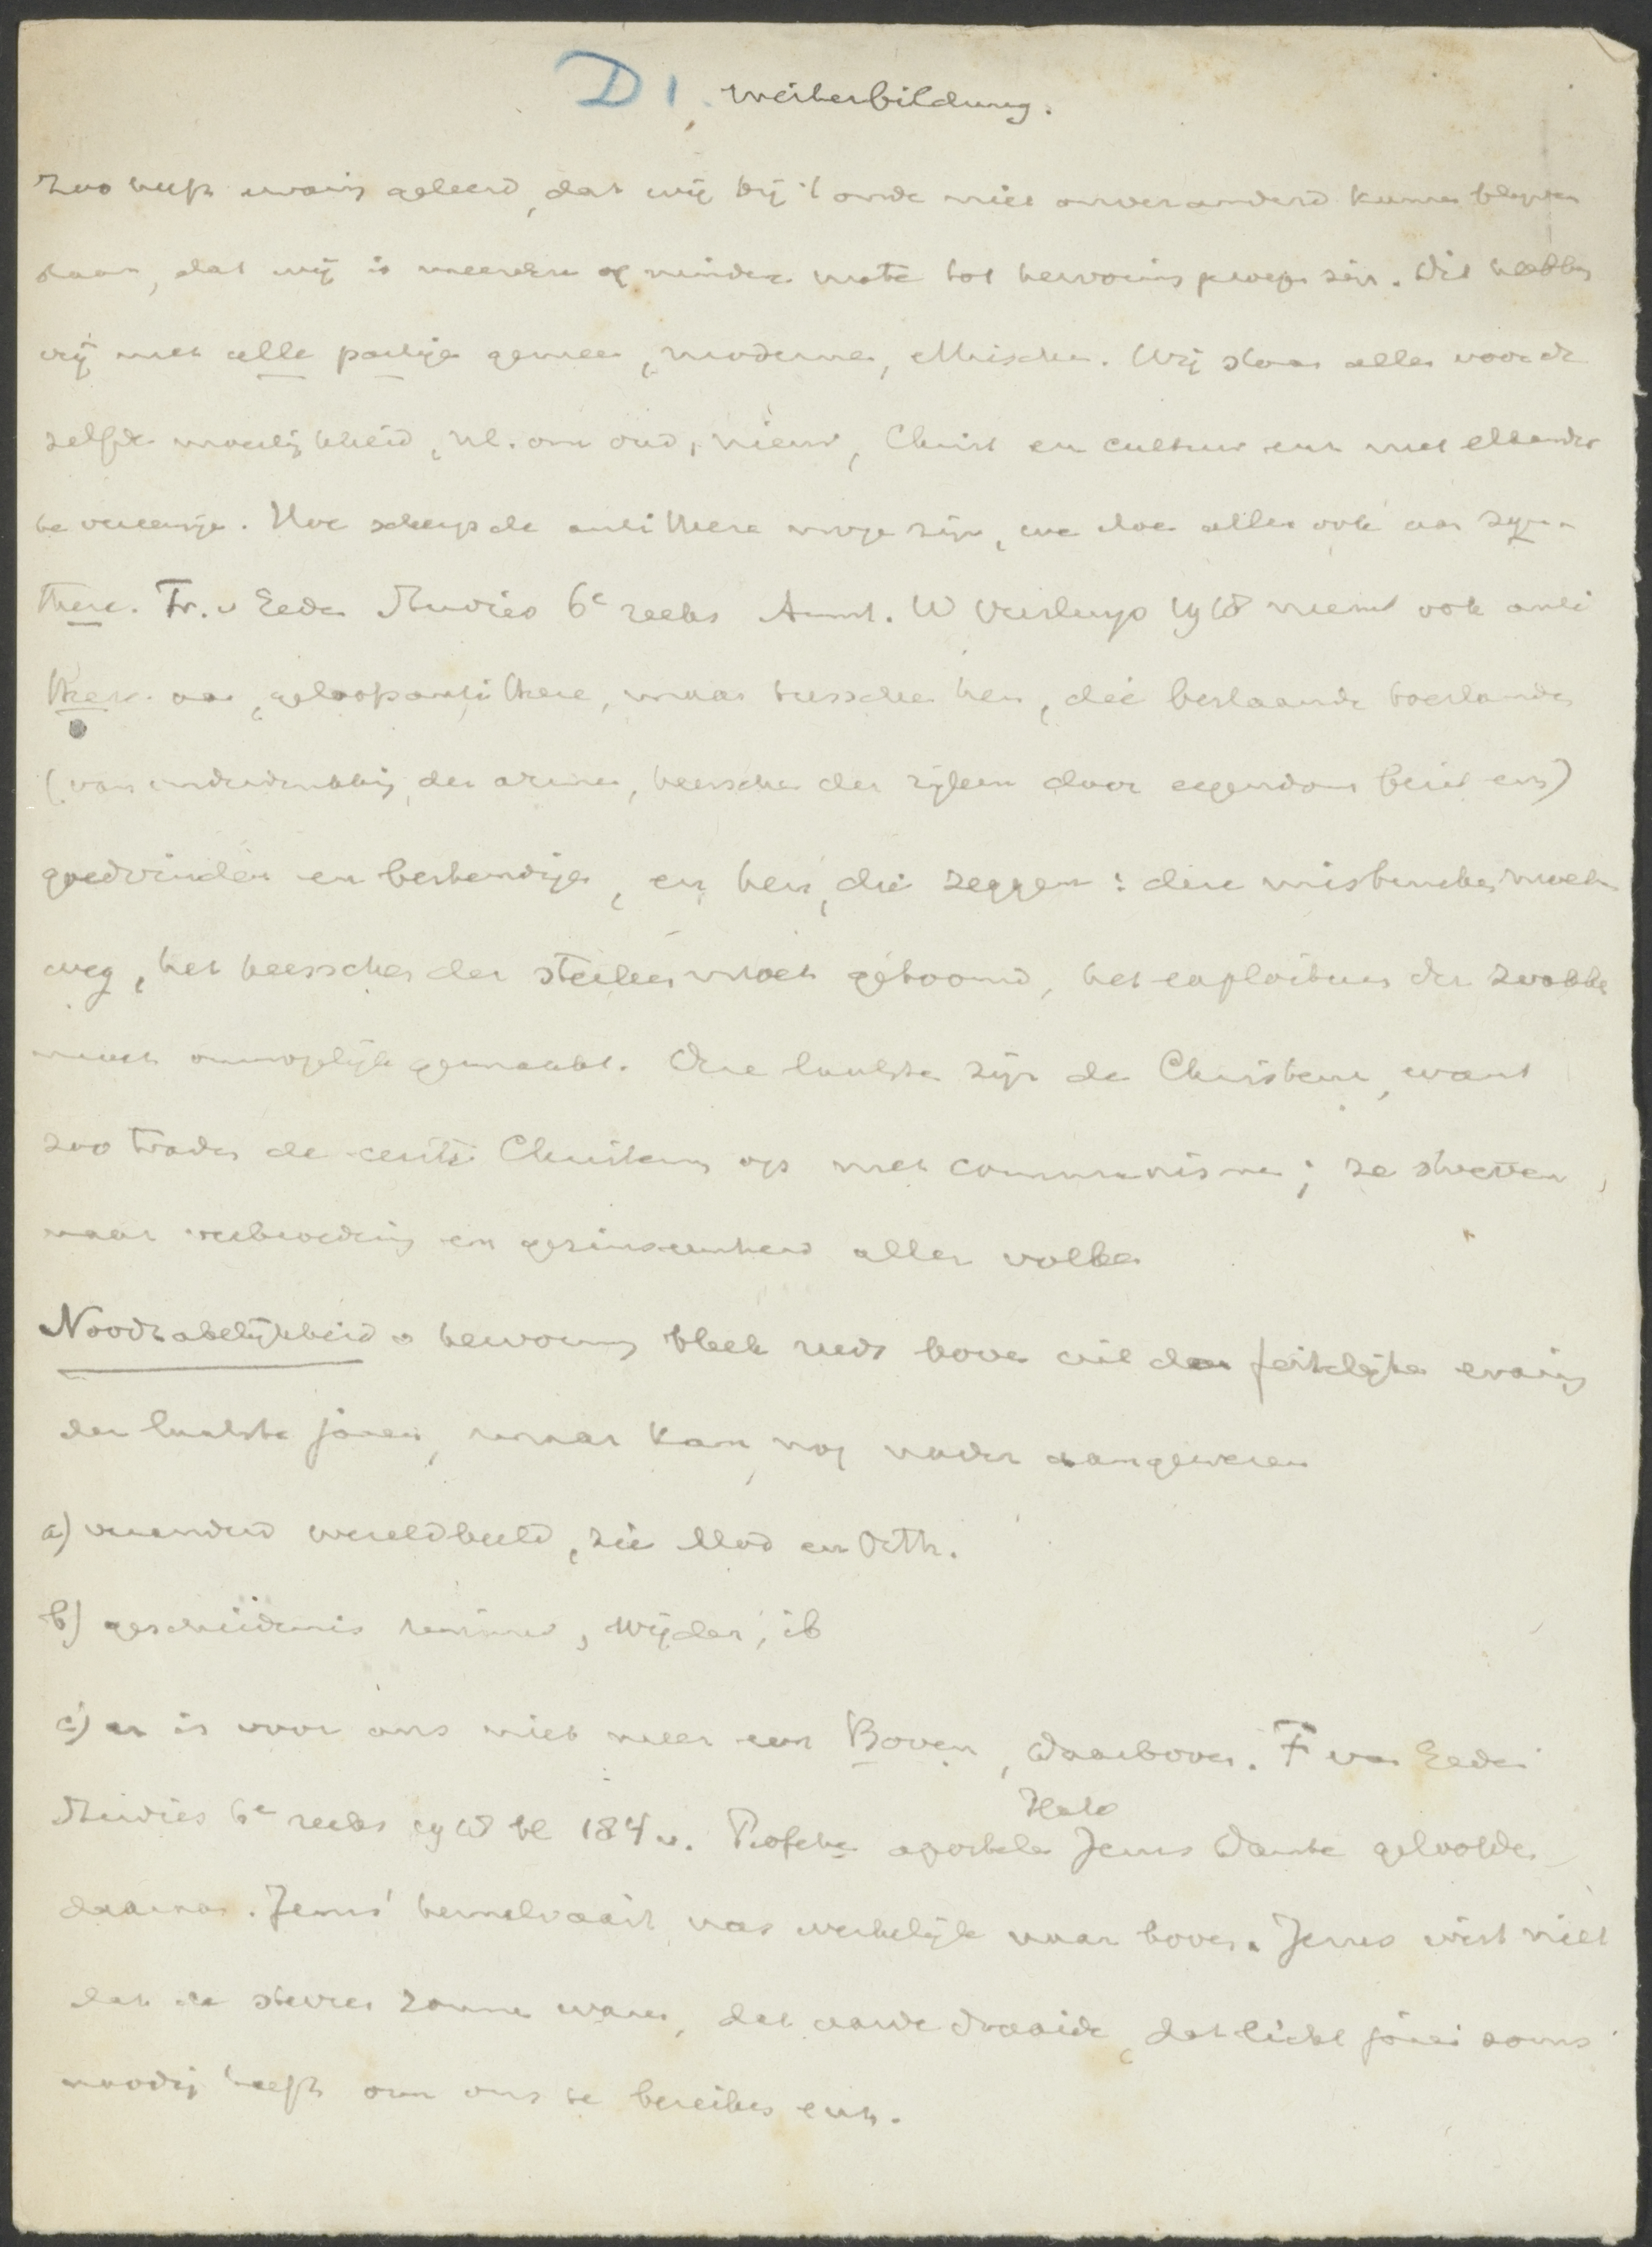 D 1. Weiterbildung.
Zoo heeft ervaring geleerd, dat wij bij 't oude niet onveranderd kunnen blijven
staan, dat wij in meerdere of mindere mate tot hervorming geroepen zijn. Dit hebben
wij met alle partijen gemeen, modernen, ethischen. Wij staan allen voor de
zelfde moeilijkheid, nl. om oud, nieuw, Christ en cultuur enz met elkander
te vereenigen. Hoe scherp de antithese moge zijn, we doen allen ook aan syn-
these. Fr. v Eeden Studies 6e reeks Amst. W Versluys 1918 neemt ook anti
these aan, geloofsantithese, maar tusschen hen, die bestaande toestanden
(van onderdrukking der armen, heerschen der rijken door eigendom bezit enz)
goedvinden en bestendigen, en hen, die zeggen: deze misbruiken moeten
weg, het heerschen der sterken moet getoomd, het exploiteeren der zwakke
moet onmogelijk gemaakt. Deze laatste zijn de Christenen, want
zoo traden de eerste Christenen op met communisme; ze streven
naar verbroedering en gezinseenheid aller volken
Noodzakelijkheid v hervorming bleek reeds boven uit den feitelijken ervaring
der laatste jaren, maar kan nog nader aangewezen
a) veranderd wereldbeeld, zie Mod en Orth.
b) geschiedenis ruimer, wijder, ib
c) er is voor ons niet meer een Boven, Daarboven. F van Eeden
Studies 6e reeks 1918 bl 184 v. Profeten apostelen Jezus Dante geloofden
daaraan. Jezus' hemelvaart was werkelijk naar boven. Jezus wist niet
dat de sterren zonnen waren, dat aarde draaide, dat licht jaren soms
noodig heeft om ons te bereiken enz.